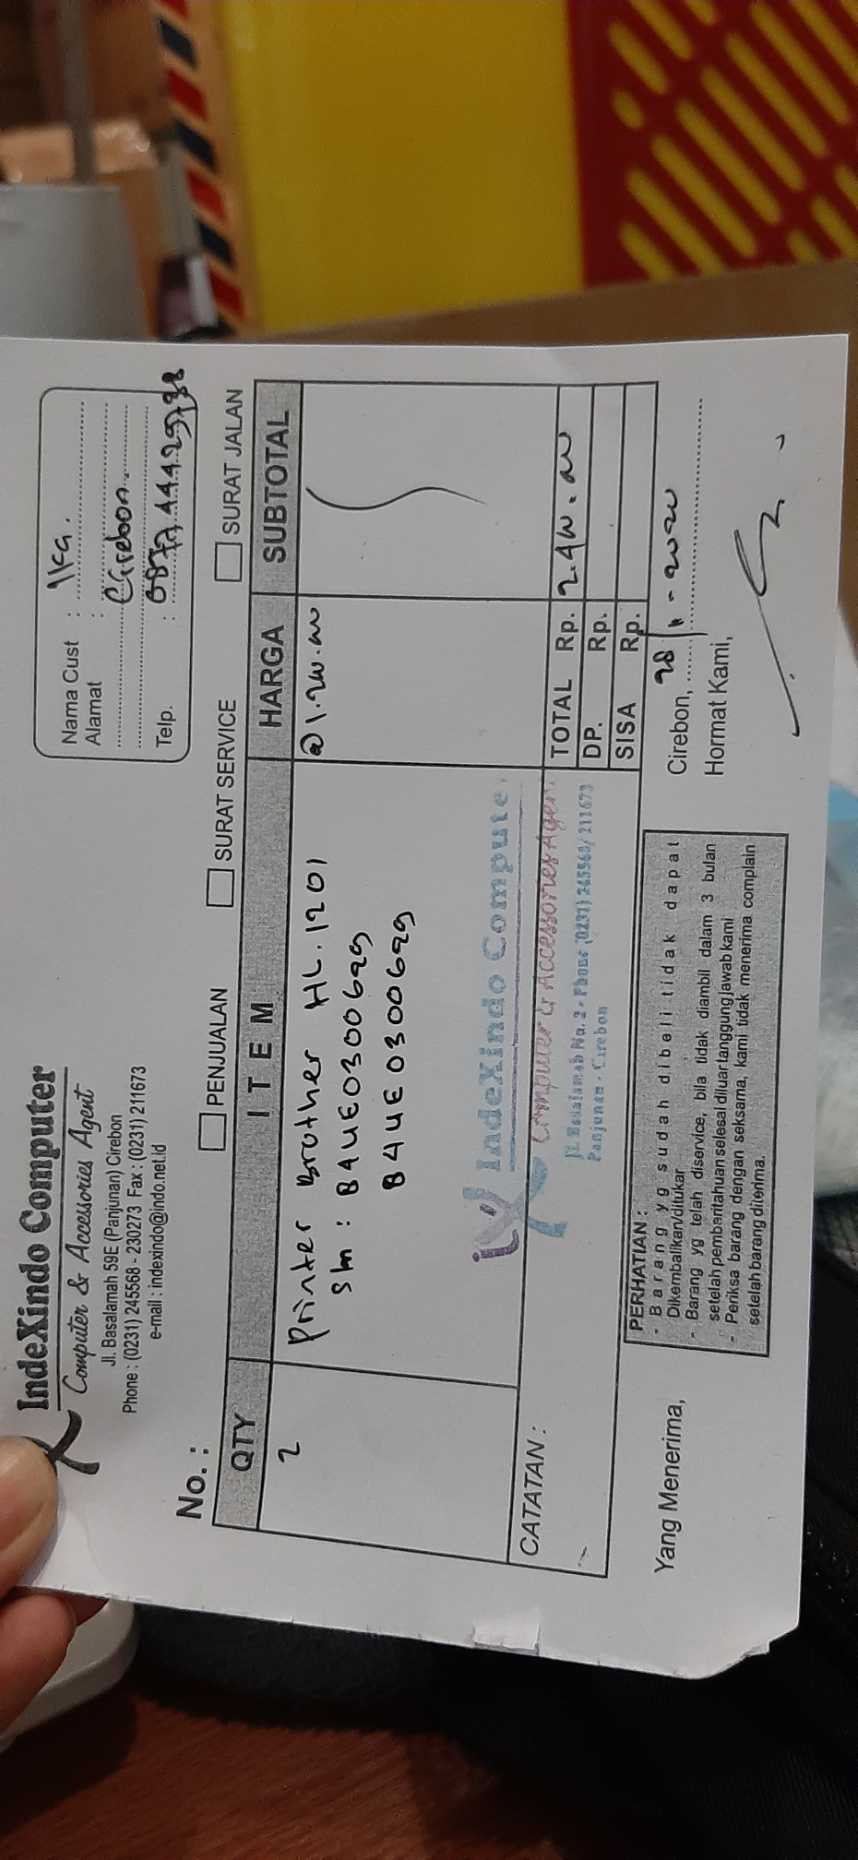 IndeXindo Computer
Computer & Accessories Agent
Jl. Basalamah 59E (Panjunan) Cirebon
Phone : (0231) 245568 - 230273 Fax : (0231) 211673
e-mail : indexindo@indo.net.id
Nama Cust : Ika.
Alamat :
Cirebon
Telp. :
No. :
PENJUALAN SURAT SERVICE SURAT JALAN
QTY ITEM HARGA SUBTOTAL
2 Printer Brother HL.1201 @1.200.000
S/n : B4UE0300629
B4UE0300699
IndeXindo Compute
Computer & Accessories Agen
Panjunan - Cirebon
CATATAN :
TOTAL Rp. 2.400.000
DP. Rp.
SISA Rp.
PERHATIAN :
- Barang yg sudah dibeli tidak dapat
Dikembalikan/ditukar
- Barang yg telah diservice, bila tidak diambil dalam 3 bulan
setelah pemberitahuan selesai diluar tanggung jawab kami
- Periksa barang dengan seksama, kami tidak menerima complain
setelah barang diterima.
Cirebon,
Yang Menerima,
Hormat Kami,